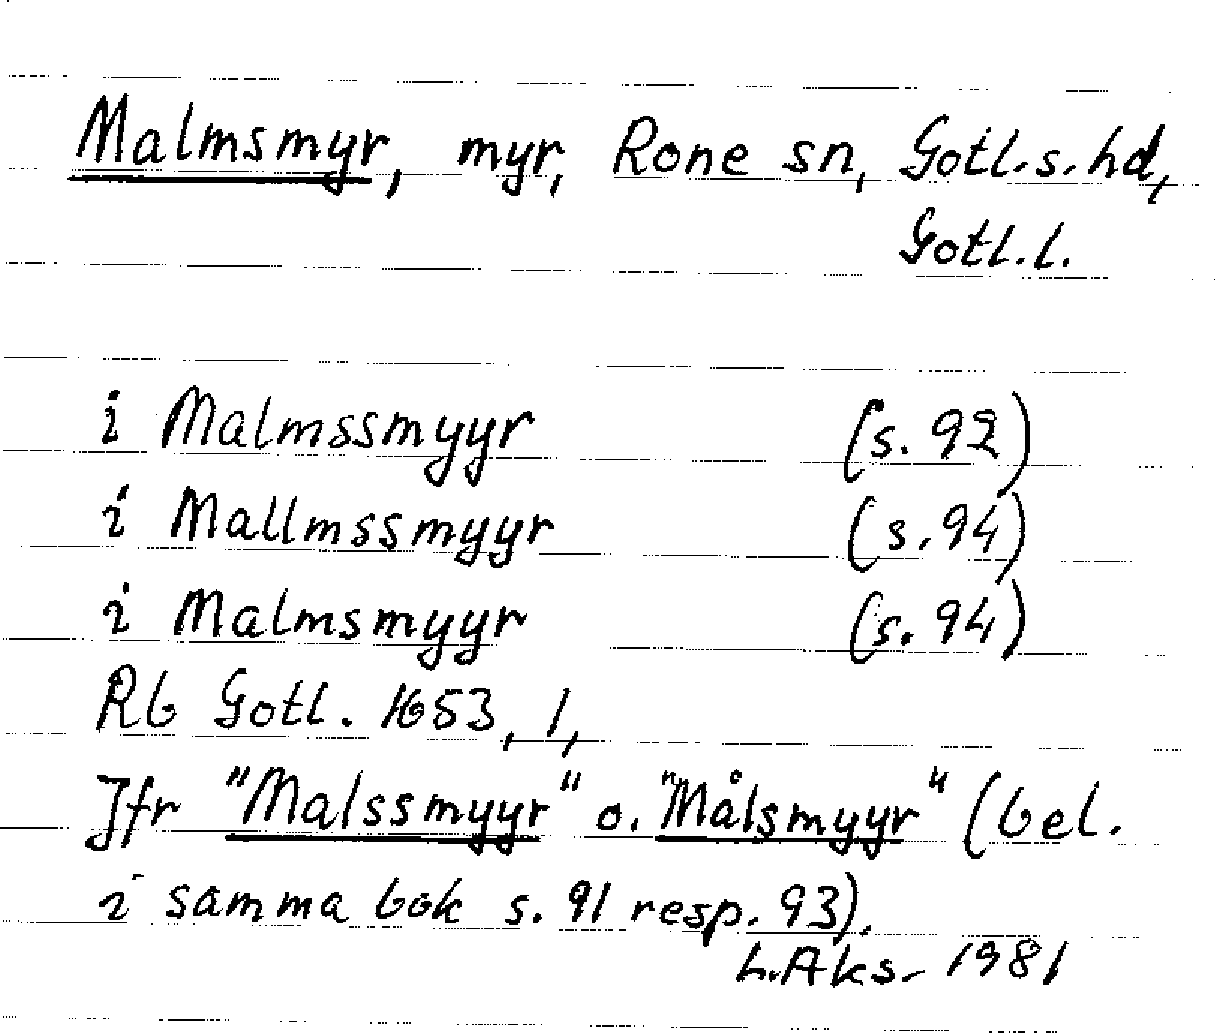 Malmsmyr, myr, Rone sn, Gotl.s.hd,
Gotl.l.
i Malmssmyyr (s. 92)
i Mallmssmyyr (s. 94)
i Malmsmyyr (s. 94)
Rb Gotl. 1653, 1,
Jfr "Malssmyyr" o. "Målsmyyr" (bel.
i samma bok s. 91 resp. 93).
L.Aks. 1981